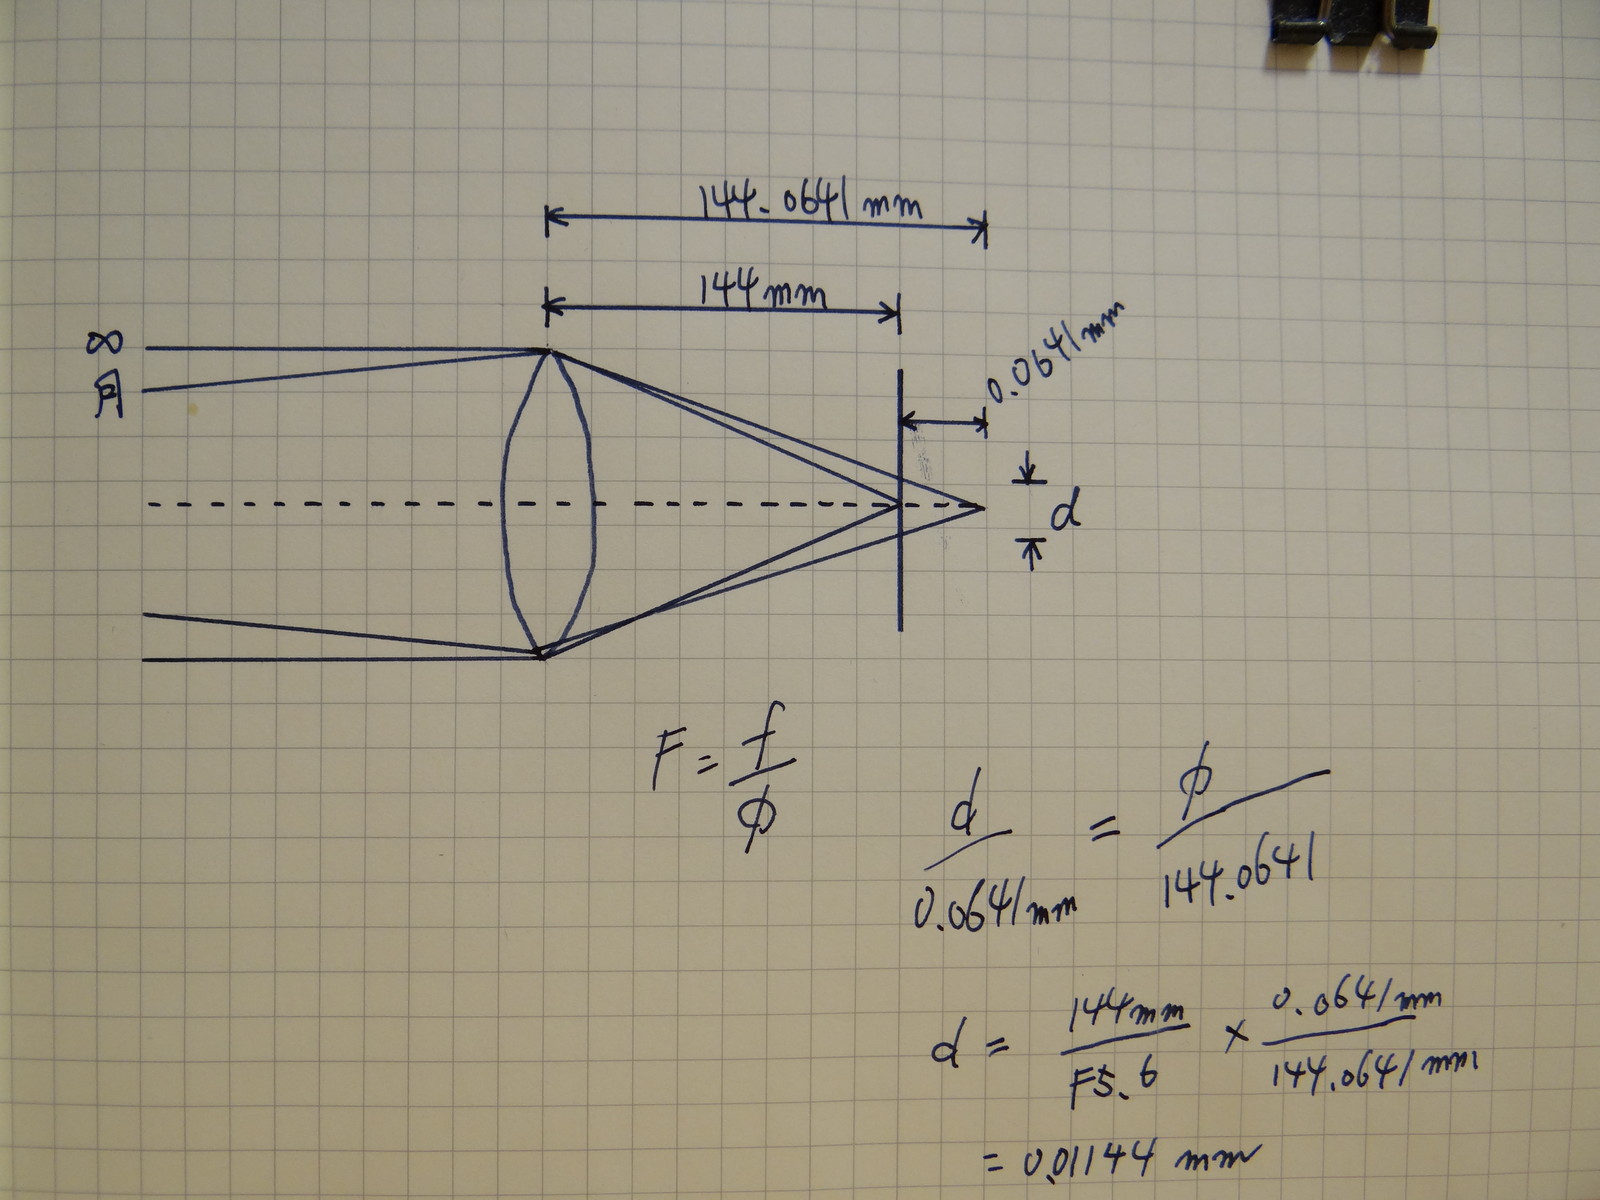 144.0641mm
144mm
0.0641mm
∞
月
d
F = f/φ
d/0.0641mm = φ/144.0641
d = 144mm/F5.6 × 0.0641mm/144.0641mm
= 0.01144 mm